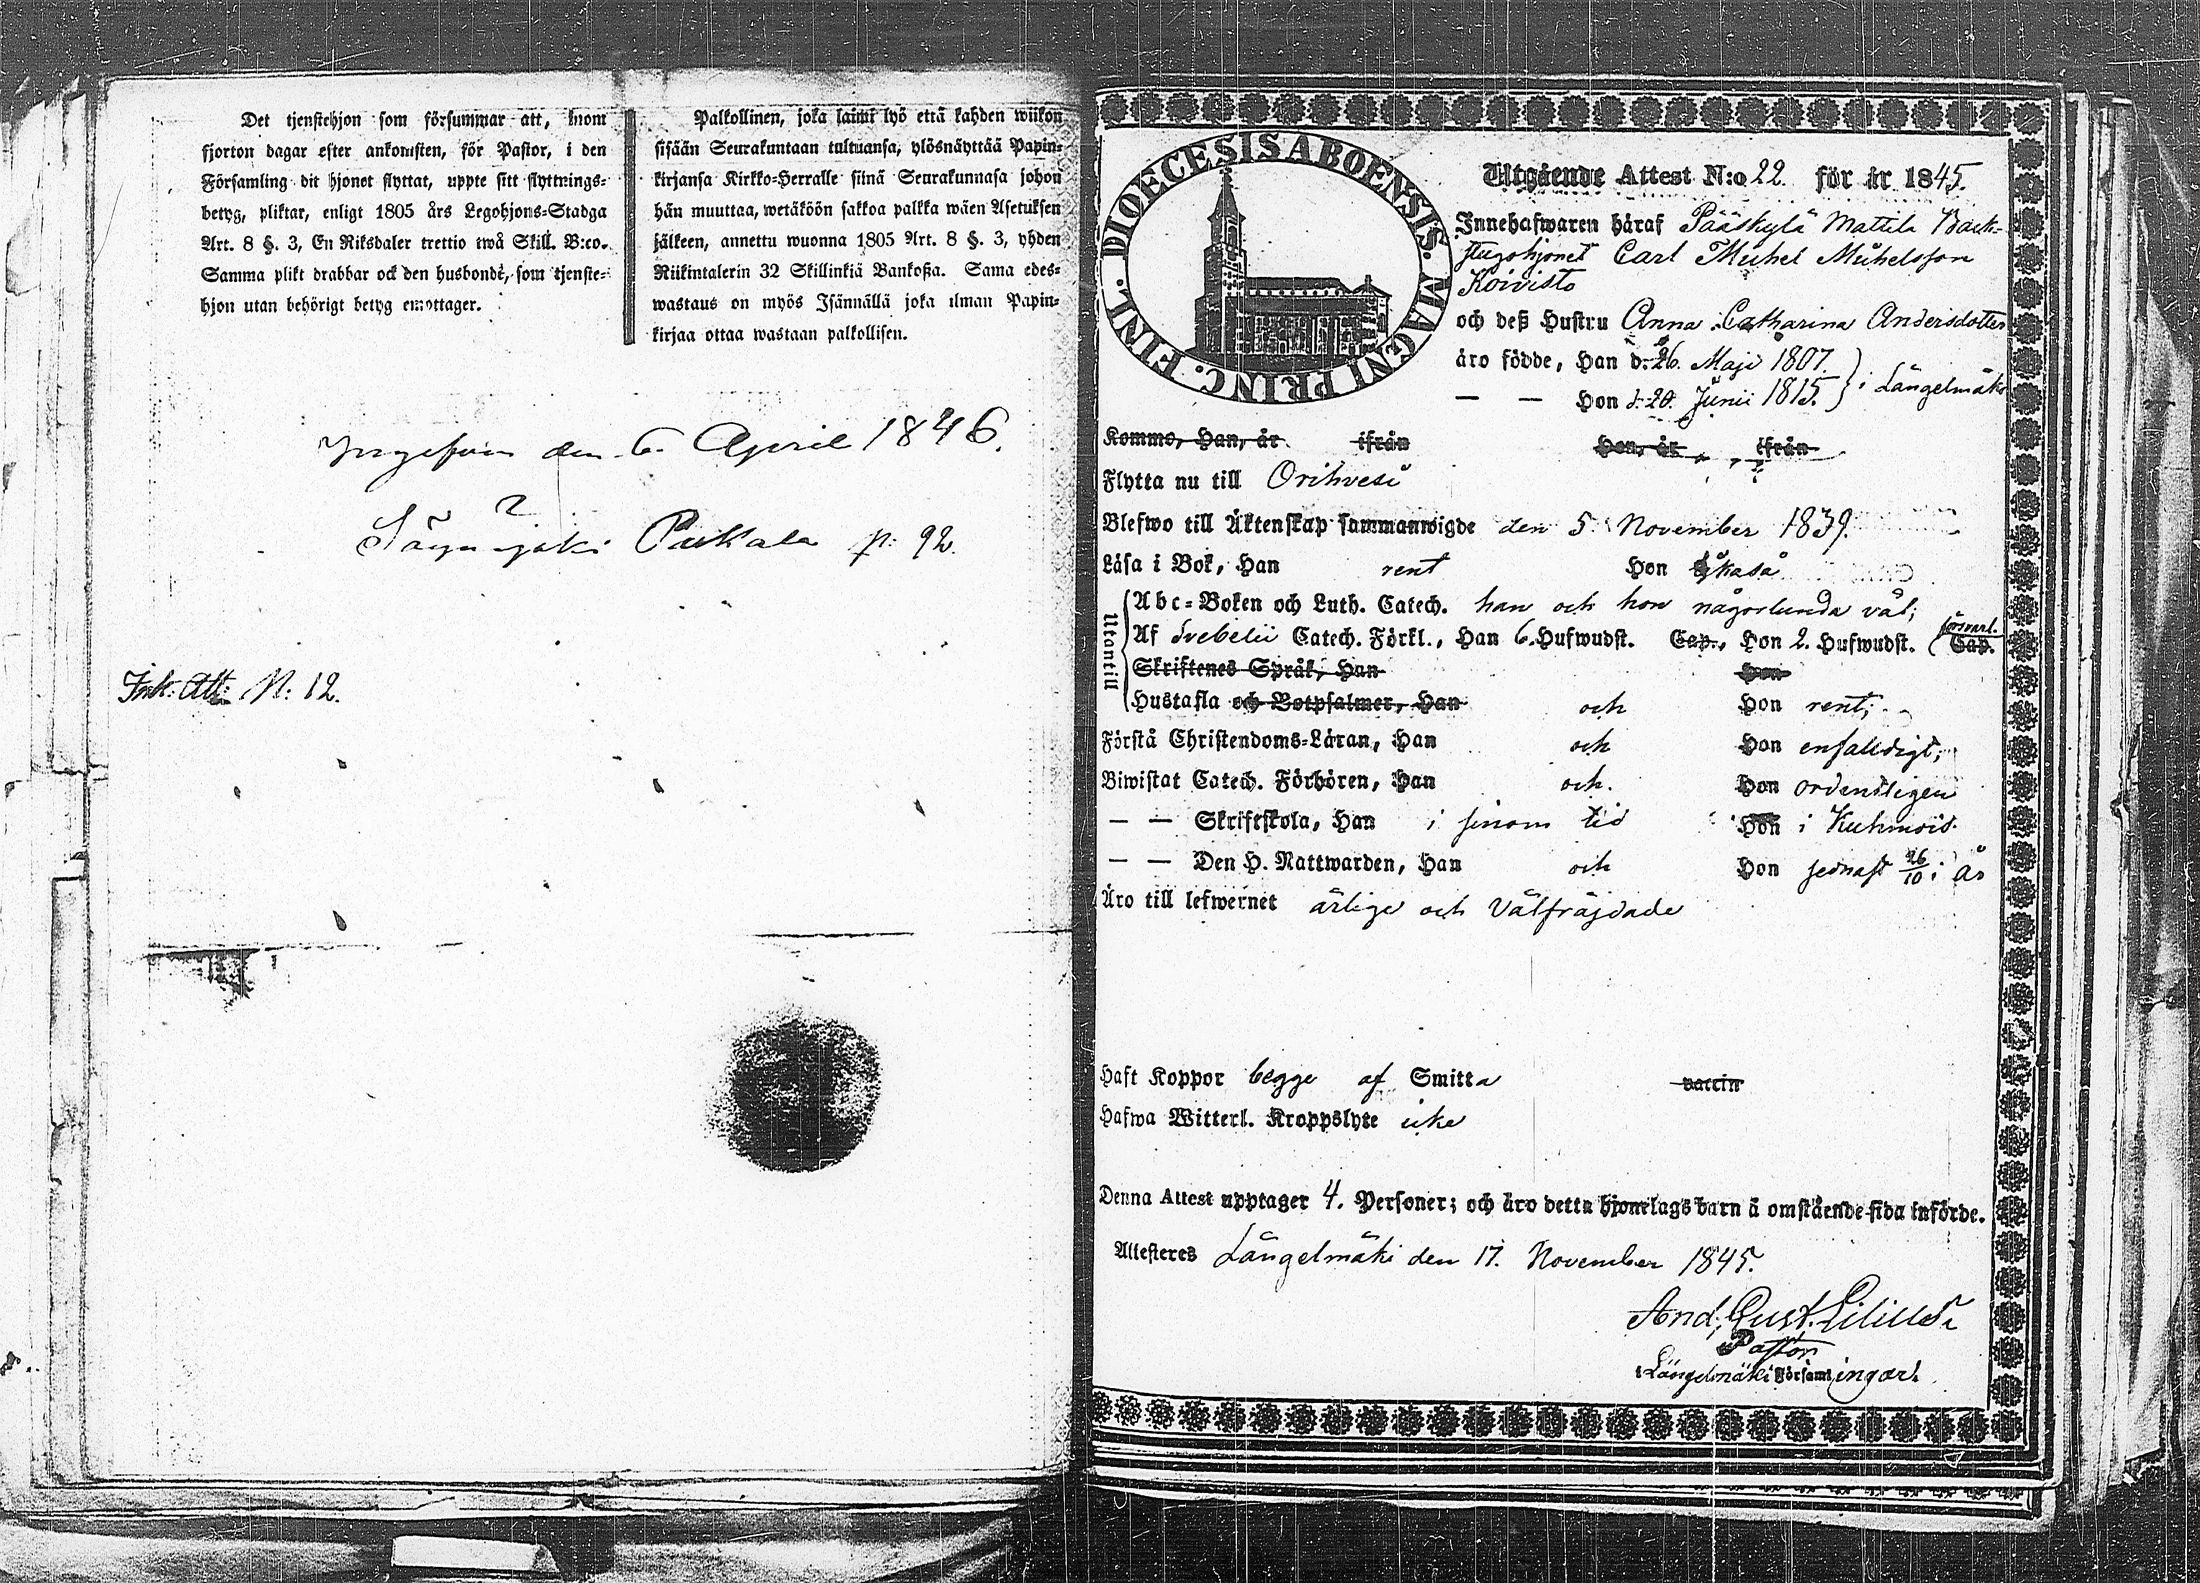 Det tjenstehjon som försummar att, inom
fjorton dagar efter ankomsten, för Pastor, i den
Församling dit hjonet flyttat, uppte sitt flyttnings-
betyg, pliktar, enligt 1805 års Legohjons-Stadga
Art. 8 §. 3, En Riksdaler trettio twå Skill. B:co.
Samma plikt drabbar ock den husbonde, som tjenste-
hjon utan behörigt betyg emottager.
Palkollinen, joka laimi lyö että kahden wiikon
sisään Seurakuntaan tultuansa, ylösnäyttää Papin-
kirjansa Kirkko-Herralle siinä Seurakunnasa johon
hän muuttaa, wetäköön sakkoa palkka wäen Asetuksen
jälkeen, annettu wuonna 1805 Art. 8 §. 3, yhden
Riikintalerin 32 Skillinkiä Bankosa. Sama edes-
wastaus on myös Isännällä joka ilman Papin-
kirjaa ottaa wastaan palkollisen.
den 6 April 1846.
Paskala p. 92.
Ink: Att: N: 12.
DIOECESIS ABOENSIS. MAGNI PRINC. FINL.
Utgående Attest N:o 22. för år 1845.
Innehafwaren häraf Pääskylä Mattila Back-
stugohjonet Carl Michel Michelsson
Koivisto
och deß Hustru Anna Catharina Andersdotter
äro födde, Han d. 26. Maji 1807.
— — Hon d. 20. Junii 1815. } i Längelmäki
Kommo, Han, år ifrån Hon, år ifrån
Flytta nu till Orihvesi
Blefwo till Äktenskap sammanwigde den 5. November 1839.
Läsa i Bok, Han rent Hon swaga
Utantill
Abc-Boken och Luth. Catech. han och hon någorlunda väl;
Af Svebelii Catech. Förkl., Han 6. Hufwudst. Cap., Hon 2. Hufwudst. försvarl. Cap.
Skriftenes Språk, Han Hon
Hustafla och Botpsalmer, Han och Hon rent;
Förstå Christendoms-Läran, Han och Hon enfaldigt;
Biwistat Catech. Förhören, Han och Hon ordentligen
— — Skriftskola, Han i sinom tid Hon i Kuhmois.
— — Den H. Nattwarden, Han och Hon sednast 26/10 i år
Äro till lefwernet ärlige och Välfräjdade
Haft Koppor begge af Smitta vaccin
Hafwa Witterl. Kroppslyte icke
Denna Attest upptager 4. Personer; och äro detta hjonelags barn å omstående sida införde.
Attesteres Längelmäki den 17. November 1845.
And. Gust. Lilius
Pastor
i Längelmäki Församlingar.